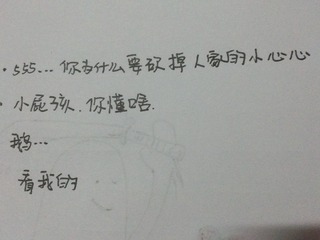 · 555... 你为什么要砍掉人家的小心心
· 小屁孩、你懂啥.
鹅...
看我的